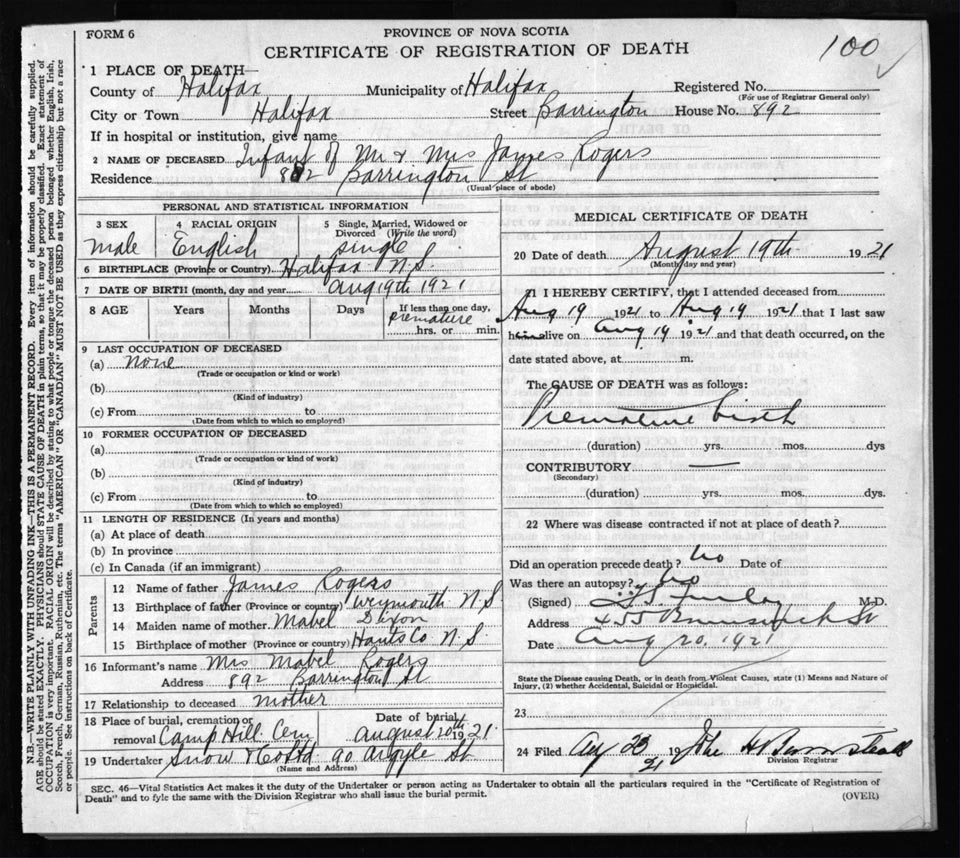 FORM 6
PROVINCE OF NOVA SCOTIA
CERTIFICATE OF REGISTRATION OF DEATH
100
1 PLACE OF DEATH—
County of Halifax Municipality of Halifax Registered No.
(For use of Registrar General only)
City or Town Halifax Street Barrington House No. 892
If in hospital or institution, give name
2 NAME OF DECEASED Infant of Mr & Mrs James Rogers
Residence 892 Barrington St
(Usual place of abode)
PERSONAL AND STATISTICAL INFORMATION
3 SEX 4 RACIAL ORIGIN 5 Single, Married, Widowed or Divorced (Write the word)
male English single
6 BIRTHPLACE (Province or Country) Halifax N.S.
7 DATE OF BIRTH (month, day and year) Aug 19th 1921
8 AGE Years Months Days If less than one day,
premature
hrs. or min.
9 LAST OCCUPATION OF DECEASED
(a) None
(Trade or occupation or kind or work)
(b)
(Kind of industry)
(c) From to
(Date from which to which so employed)
10 FORMER OCCUPATION OF DECEASED
(a)
(Trade or occupation or kind of work)
(b)
(Kind of industry)
(c) From to
(Date from which to which so employed)
11 LENGTH OF RESIDENCE (In years and months)
(a) At place of death
(b) In province
(c) In Canada (if an immigrant)
Parents
12 Name of father James Rogers
13 Birthplace of father (Province or country) Weymouth N S
14 Maiden name of mother Mabel Dixon
15 Birthplace of mother (Province or country) Hants Co N.S.
16 Informant's name Mrs Mabel Rogers
Address 892 Barrington St
17 Relationship to deceased mother
18 Place of burial, cremation or removal Camp Hill Cem Date of burial August 20th 1921
19 Undertaker Snow & Co Ltd 90 Argyle St
(Name and Address)
MEDICAL CERTIFICATE OF DEATH
20 Date of death August 19th 1921
(Month, day and year)
21 I HEREBY CERTIFY, that I attended deceased from
Aug 19 1921 to Aug 19 1921 that I last saw
h alive on Aug 19 1921 and that death occurred, on the
date stated above, at m.
The CAUSE OF DEATH was as follows:
Premature birth
(duration) yrs. mos. dys
CONTRIBUTORY —
(Secondary)
(duration) yrs. mos. dys.
22 Where was disease contracted if not at place of death?
Did an operation precede death? no Date of
Was there an autopsy? no
(Signed) M.D.
Address 455 Brunswick St
Date Aug 20, 1921
State the Disease causing Death, or in death from Violent Causes, state (1) Means and Nature of
Injury, (2) whether Accidental, Suicidal or Homicidal.
23
24 Filed Aug 23 1921 John H
Division Registrar
SEC. 46—Vital Statistics Act makes it the duty of the Undertaker or person acting as Undertaker to obtain all the particulars required in the "Certificate of Registration of
Death" and to fyle the same with the Division Registrar who shall issue the burial permit.
(OVER)
N.B.—WRITE PLAINLY WITH UNFADING INK—THIS IS A PERMANENT RECORD. Every item of information should be carefully supplied.
AGE should be stated EXACTLY. PHYSICIANS should STATE CAUSE OF DEATH in plain terms, so that it may be properly classified. Exact statement of
OCCUPATION is very important. RACIAL ORIGIN will be described by stating to what people or tongue the deceased person belonged whether English, Irish,
Scotch, French, German, Russian, Ruthenian, etc. The terms "AMERICAN" OR "CANADIAN" MUST NOT BE USED as they express citizenship but not a race
or people. See instructions on back of Certificate.